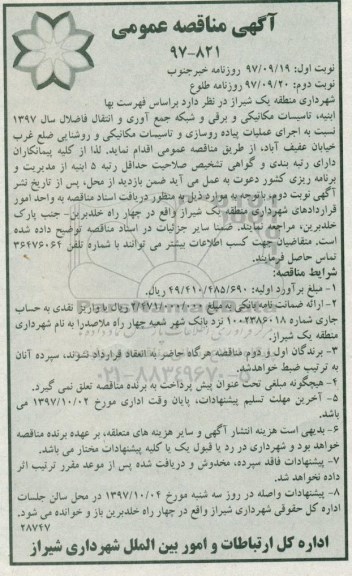 آگهی مناقصه عمومی
۹۷-۸۲۱
نوبت اول: ۹۷/۰۹/۱۹ روزنامه خبرجنوب
نوبت دوم: ۹۷/۰۹/۲۰ روزنامه طلوع
شهرداری منطقه یک شیراز در نظر دارد براساس فهرست بها
ابنیه، تاسیسات مکانیکی و برقی و شبکه جمع آوری و انتقال فاضلاب سال ۱۳۹۷
نسبت به اجرای عملیات پیاده روسازی و تاسیسات مکانیکی و روشنایی ضلع غرب
خیابان عفیف آباد، از طریق مناقصه عمومی اقدام نماید. لذا از کلیه پیمانکاران
دارای رتبه بندی و گواهی تشخیص صلاحیت حداقل رتبه ۵ ابنیه از مدیریت و
برنامه ریزی کشور دعوت به عمل می آید ضمن بازدید از محل، پس از تاریخ نشر
آگهی نوبت دوم باتوجه به موارد ذیل به منظور دریافت اسناد مناقصه به واحد امور
قراردادهای شهرداری منطقه یک شیراز واقع در چهار راه خلدبرین- جنب پارک
خلدبرین، مراجعه نمایند. ضمنا سایر جزئیات در اسناد مناقصه توضیح داده شده
است. متقاضیان جهت کسب اطلاعات بیشتر می توانند با شماره تلفن ۳۶۴۷۶۰۶۴
تماس حاصل فرمایند.
شرایط مناقصه:
۱- مبلغ برآورد اولیه: ۴۹/۴۱۰/۴۸۵/۶۹۰ ریال.
۲- ارائه ضمانت نامه بانکی به مبلغ ۲/۴۷۱/۰۰۰/۰۰۰ ریال یا واریز نقدی به حساب
جاری شماره ۱۰۰۲۳۸۶۰۱۸ نزد بانک شهر شعبه چهار راه ملاصدرا به نام شهرداری
منطقه یک شیراز.
۳- برندگان اول و دوم مناقصه هرگاه حاضر به انعقاد قرارداد نشوند، سپرده آنان
به ترتیب ضبط خواهدشد.
۴- هیچگونه مبلغی تحت عنوان پیش پرداخت به برنده مناقصه تعلق نمی گیرد.
۵- آخرین مهلت تسلیم پیشنهادات، پایان وقت اداری مورخ ۱۳۹۷/۱۰/۰۲ می
باشد.
۶- بدیهی است هزینه انتشار آگهی و سایر هزینه های متعلقه، بر عهده برنده مناقصه
خواهد بود و شهرداری در رد یا قبول یک یا کلیه پیشنهادات مختار می باشد.
۷- پیشنهادات فاقد سپرده، مخدوش و دریافت شده پس از موعد مقرر ترتیب اثر
داده نخواهد شد.
۸- پیشنهادات واصله در روز سه شنبه مورخ ۱۳۹۷/۱۰/۰۴ در محل سالن جلسات
اداره کل حقوقی شهرداری شیراز واقع در چهار راه خلدبرین باز و خوانده می شود.
۲۸۷۴۷
اداره کل ارتباطات و امور بین الملل شهرداری شیراز